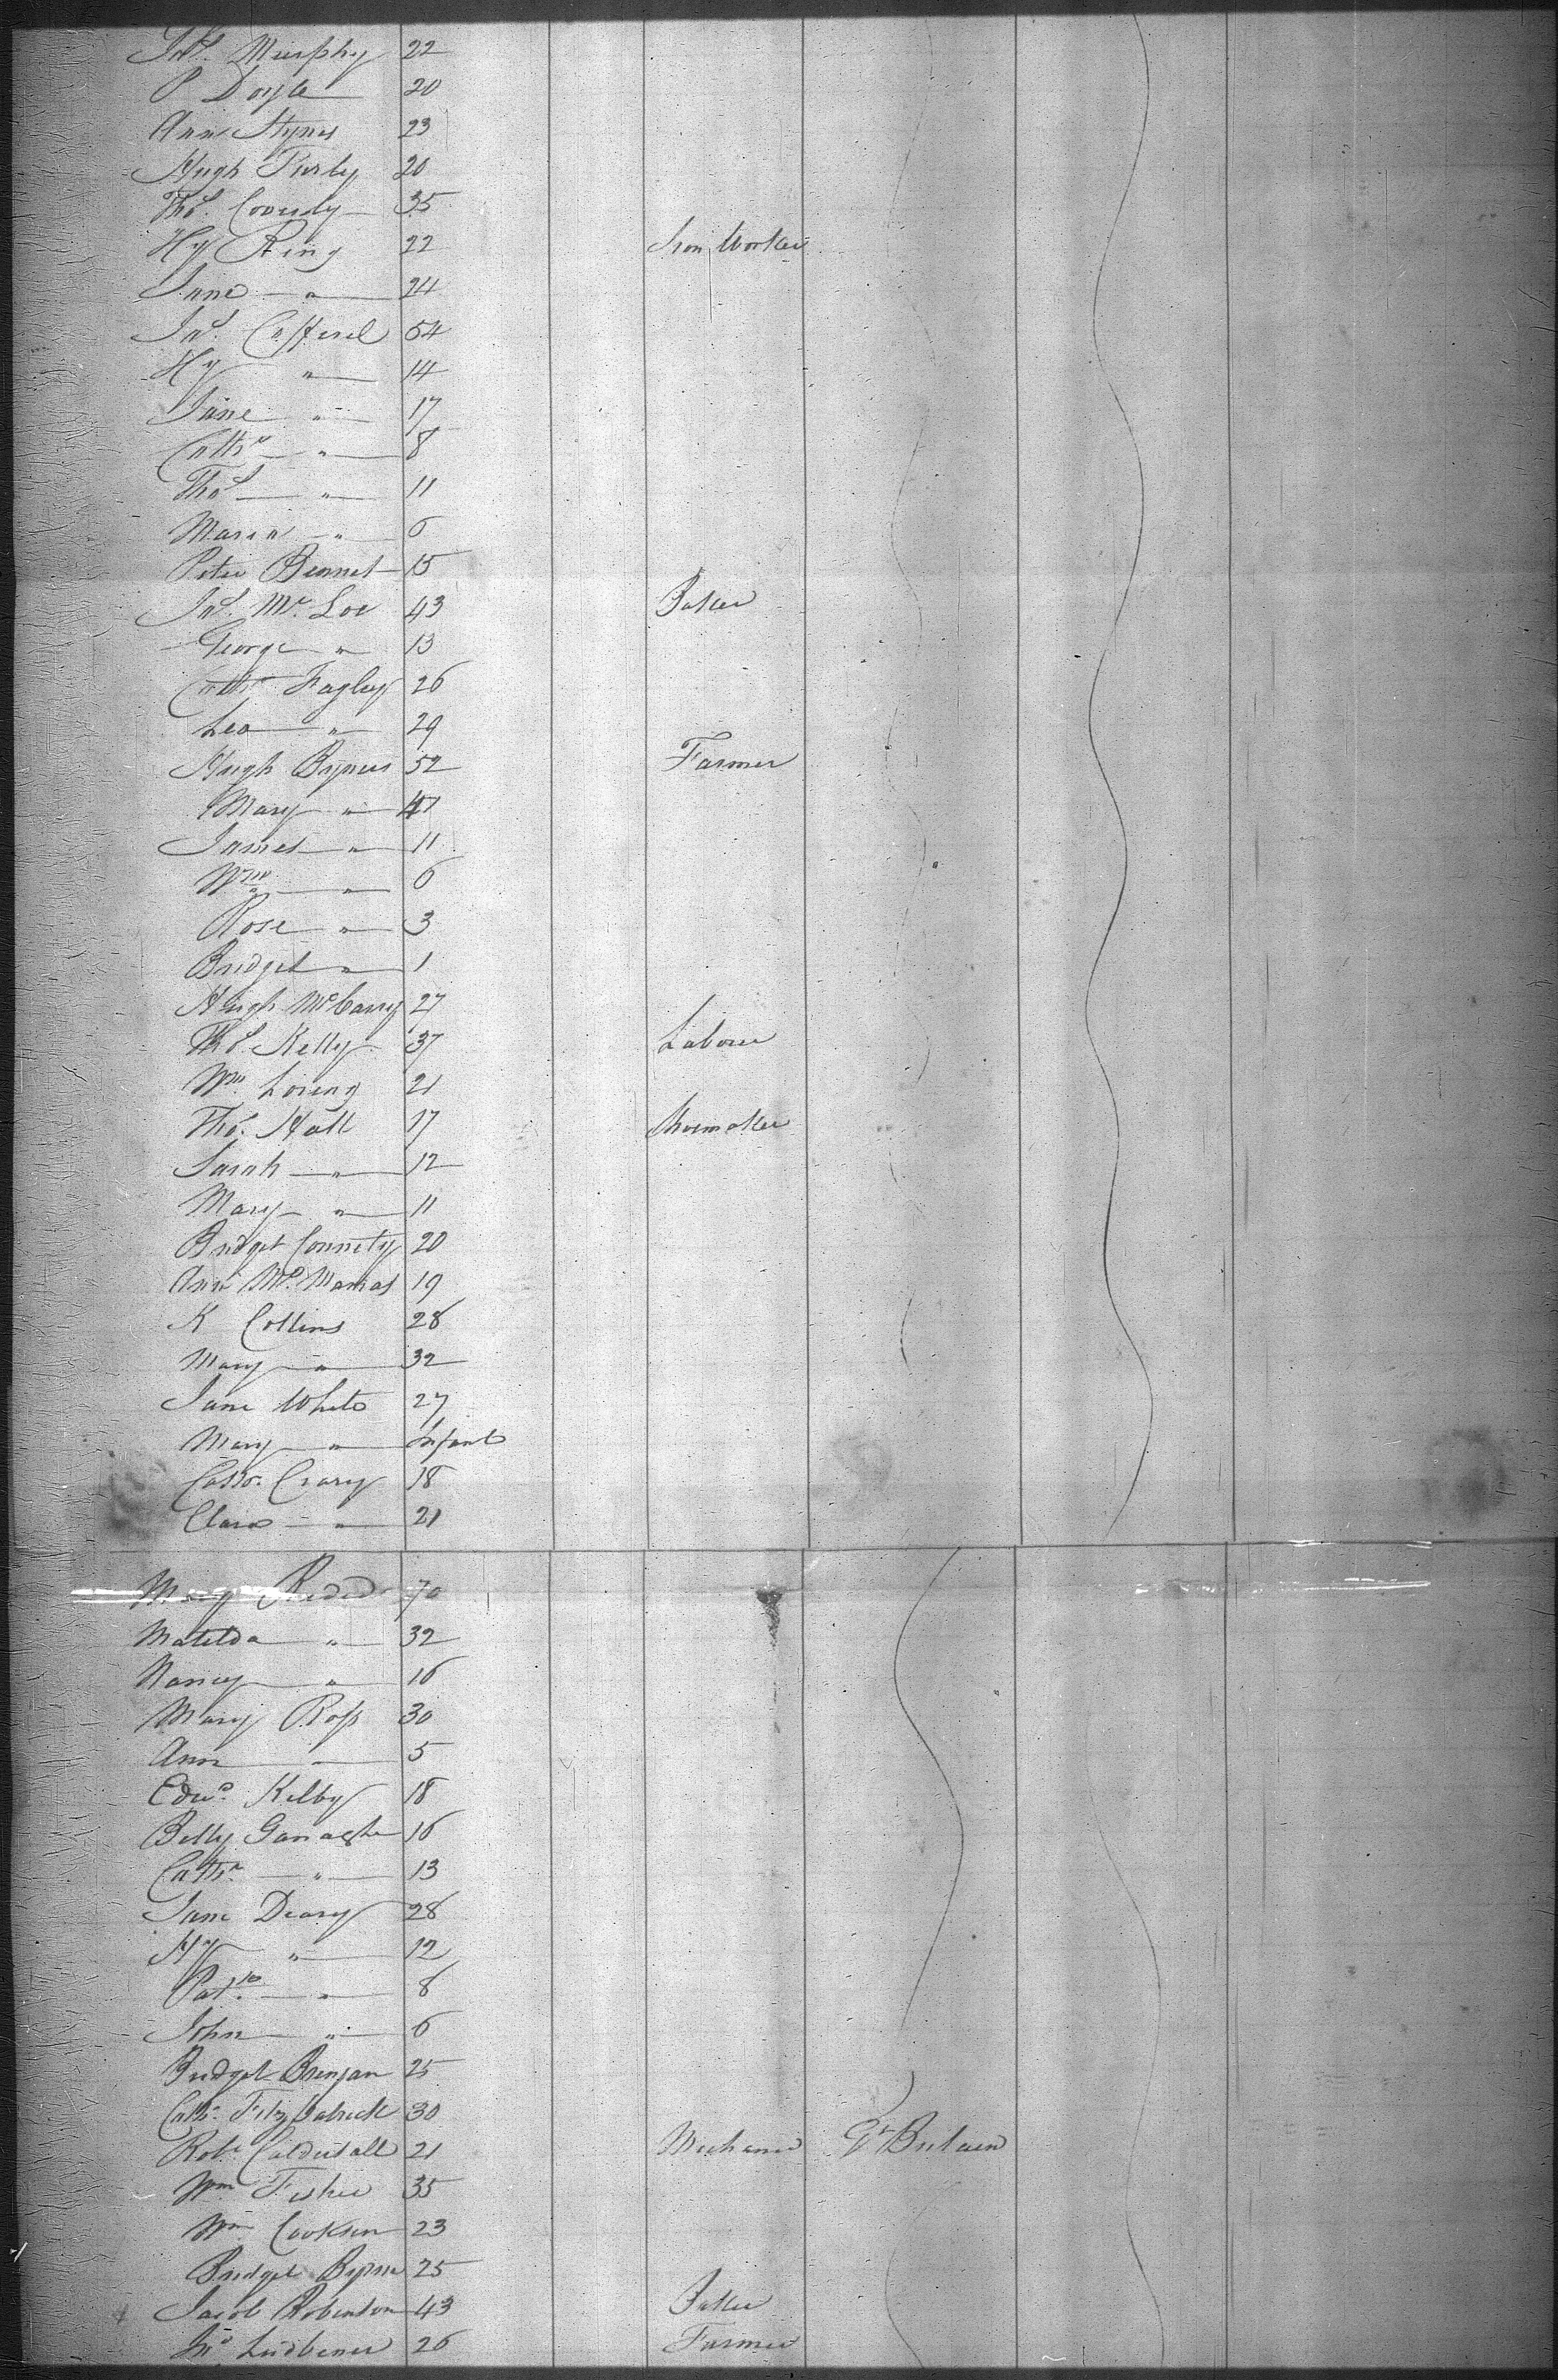 Jno. Murphy 22
P Doyle 20
Ann Hynes 23
Hugh Turley 20
Thos. Coverdy 35
Hy King 22 Iron Worker
Jane " 24
Jno. Cafferel 54
Hy " 14
Jane " 17
Cathe " 8
Thos " 11
Maria " 6
Peter Bennet 15
Jno. Mc. Loe 43 Baker
George " 13
Cathe Fagley 26
Leo " 29
Hugh Byrnes 52 Farmer
Mary " 47
James " 11
Wm " 6
Rose " 3
Bridget " 1
Hugh McCarry 27
Thos. Kelly 37 Laborer
Wm. Loring 21
Thos. Hall 17 Shoemaker
Sarah " 12
Mary " 11
Bridget Connety 20
Ann Mc. Manas 19
K Collins 28
Mary " 32
Jane White 27
Mary " Infant
Crary 18
Clara " 21
Mary 70
Matilda " 32
Nancy " 16
Mary Ross 30
Ann " 5
Edwd. Kelby 18
Betty 16
Cathe. " 13
Jane Deary 28
Hy " 12
Patk. " 8
John " 6
Bridget 25
Cathe. Fitzpatrick 30
Robt 21 Mechanic Gt Britain
Wm Fisher 35
Wm Cookson 23
Bridget Byrne 25
Jacob Robertson 43 Baker
Jno 26 Farmer